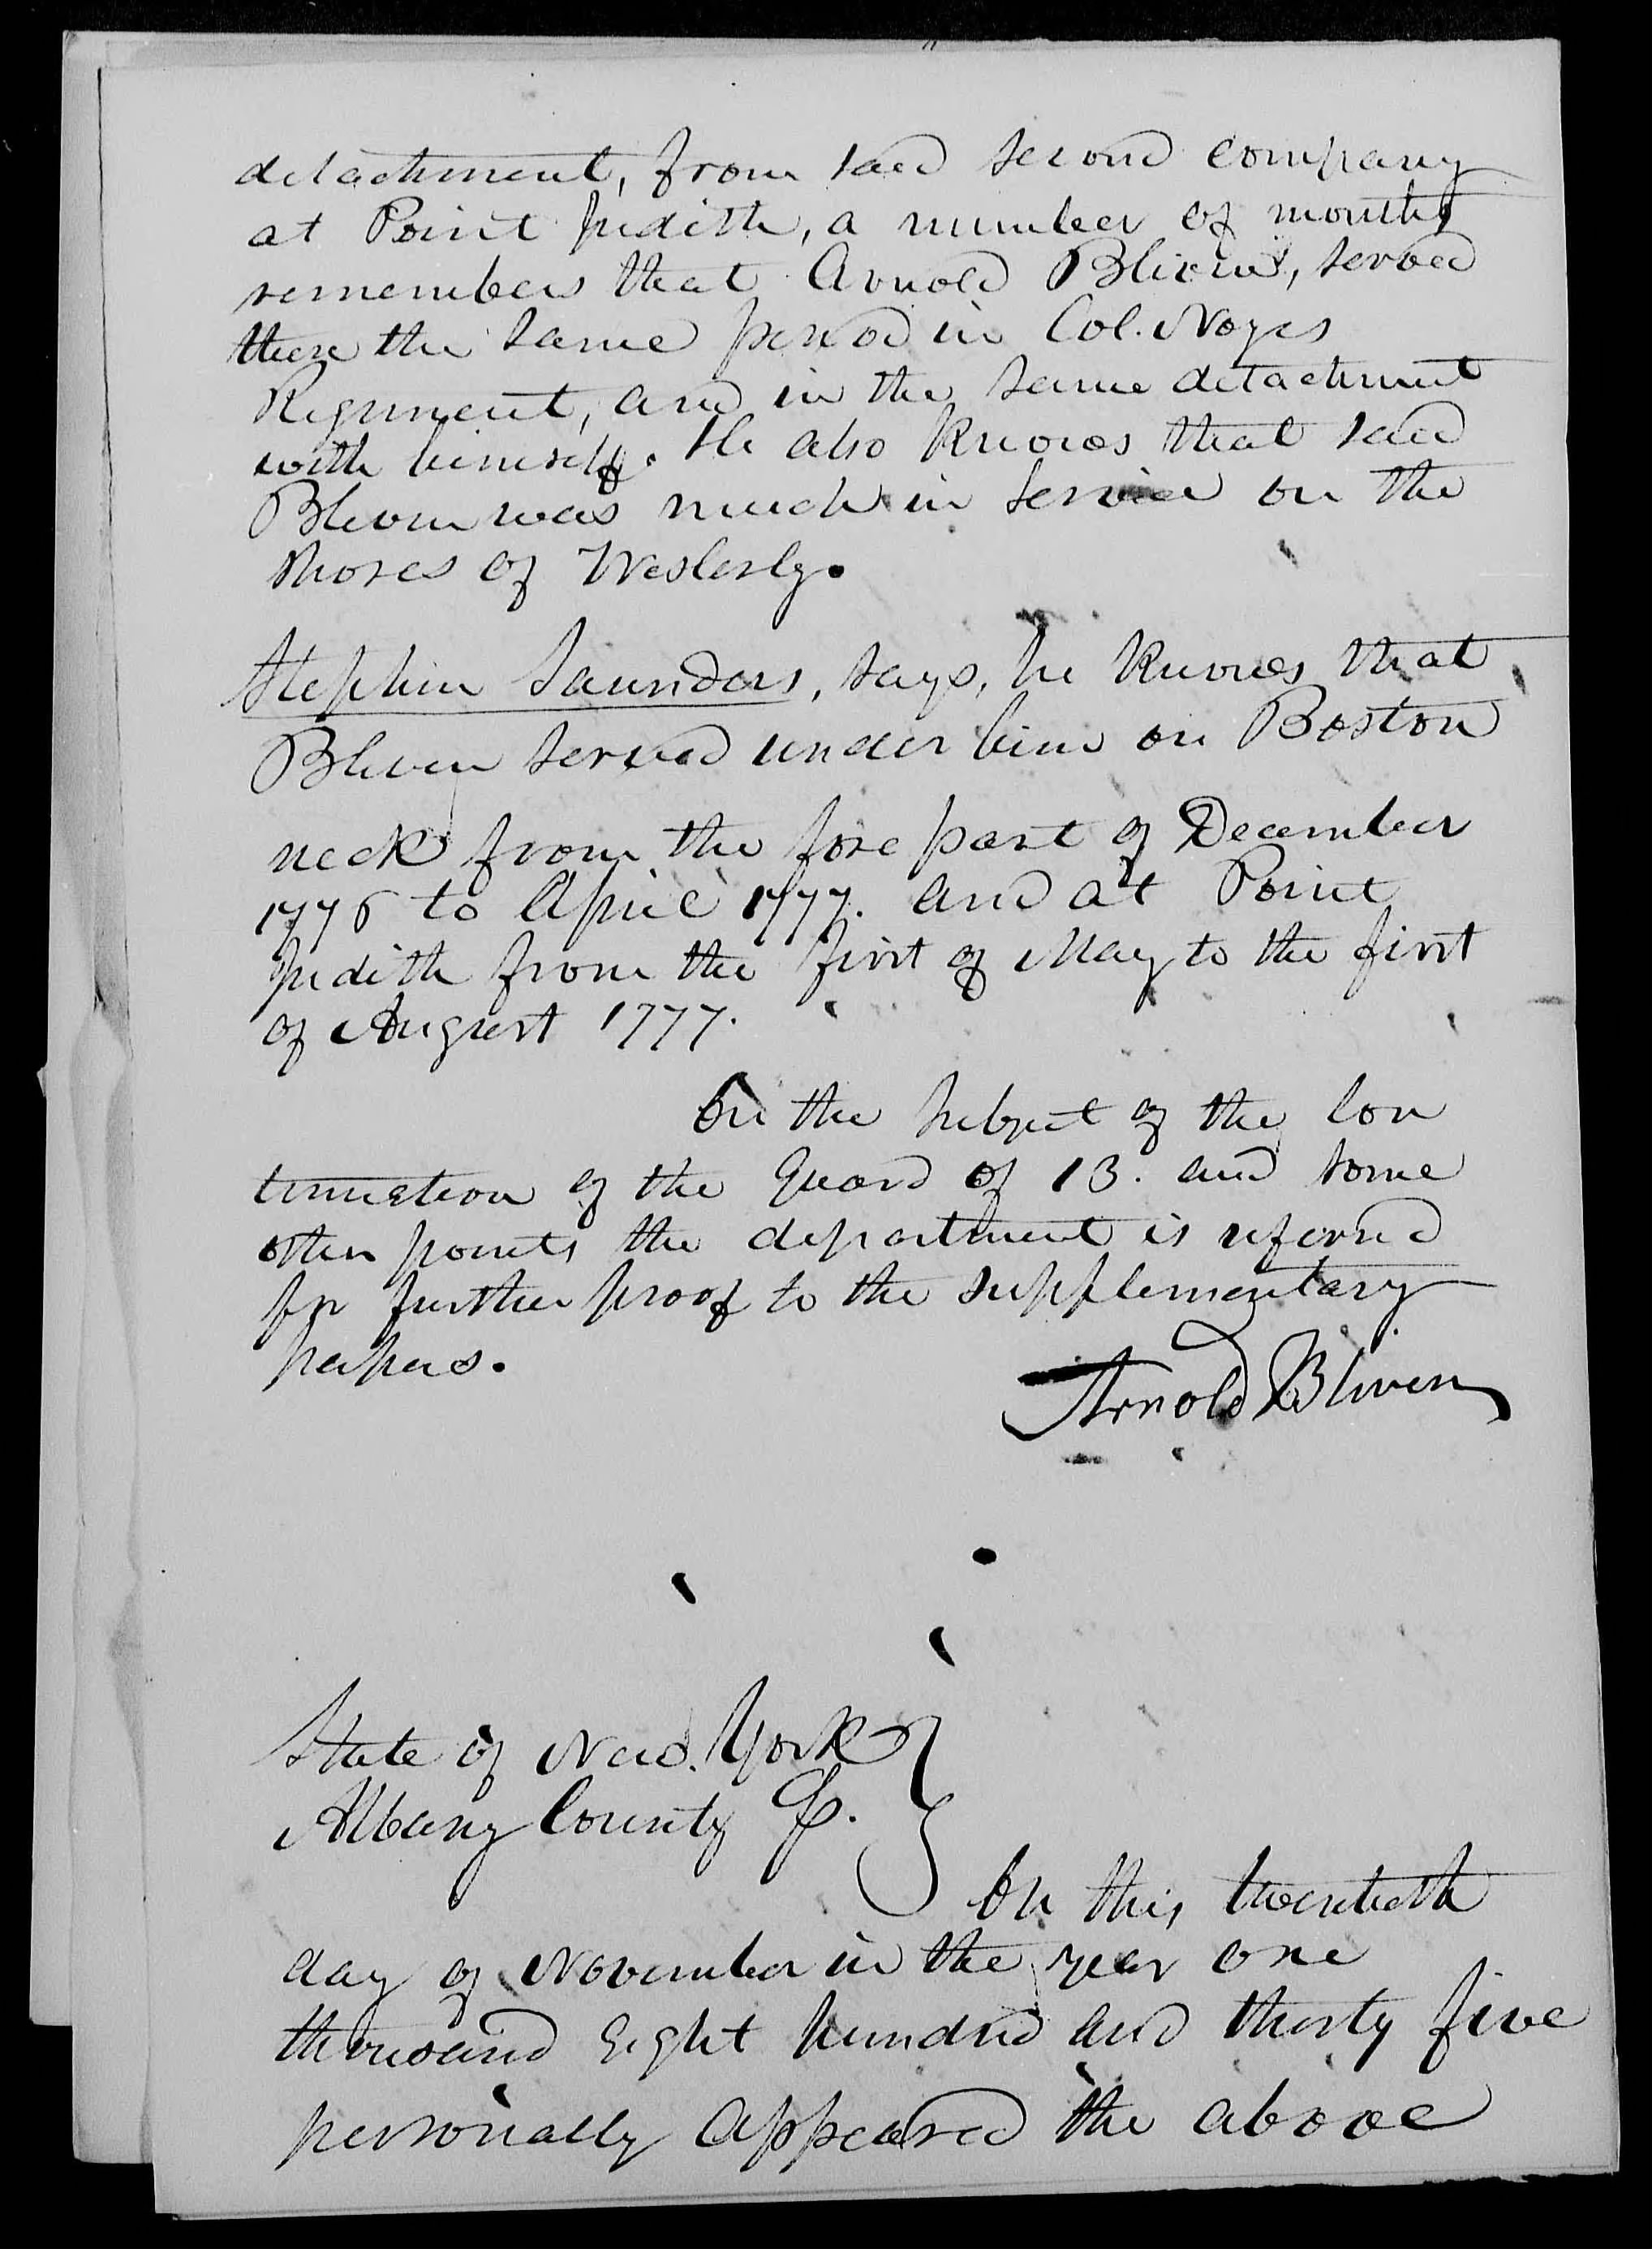 detachment, from said second company
at Point Judith, a number of months
remembers that Arnold Bliven, served
there the same period in Col. Noyes
Regiment, and in the same detachment
with himself. He also knows that said
Bliven was much in service on the
shores of Westerly.
Stephen Saunders, says, he knows that
Bliven served under him on Boston
neck from the fore part of December
1776 to April 1777. and at Point
Judith from the first of May to the first
of August 1777.
On the subject of the Con
tinuation of the Guard of 13. and some
other points the department is referred
for further proof to the supplementary
papers.
Arnold Bliven
State of New York
Albany County Ss.
On this twentieth
day of November in the year one
thousand Eight hundred and thirty five
personally appeared the above